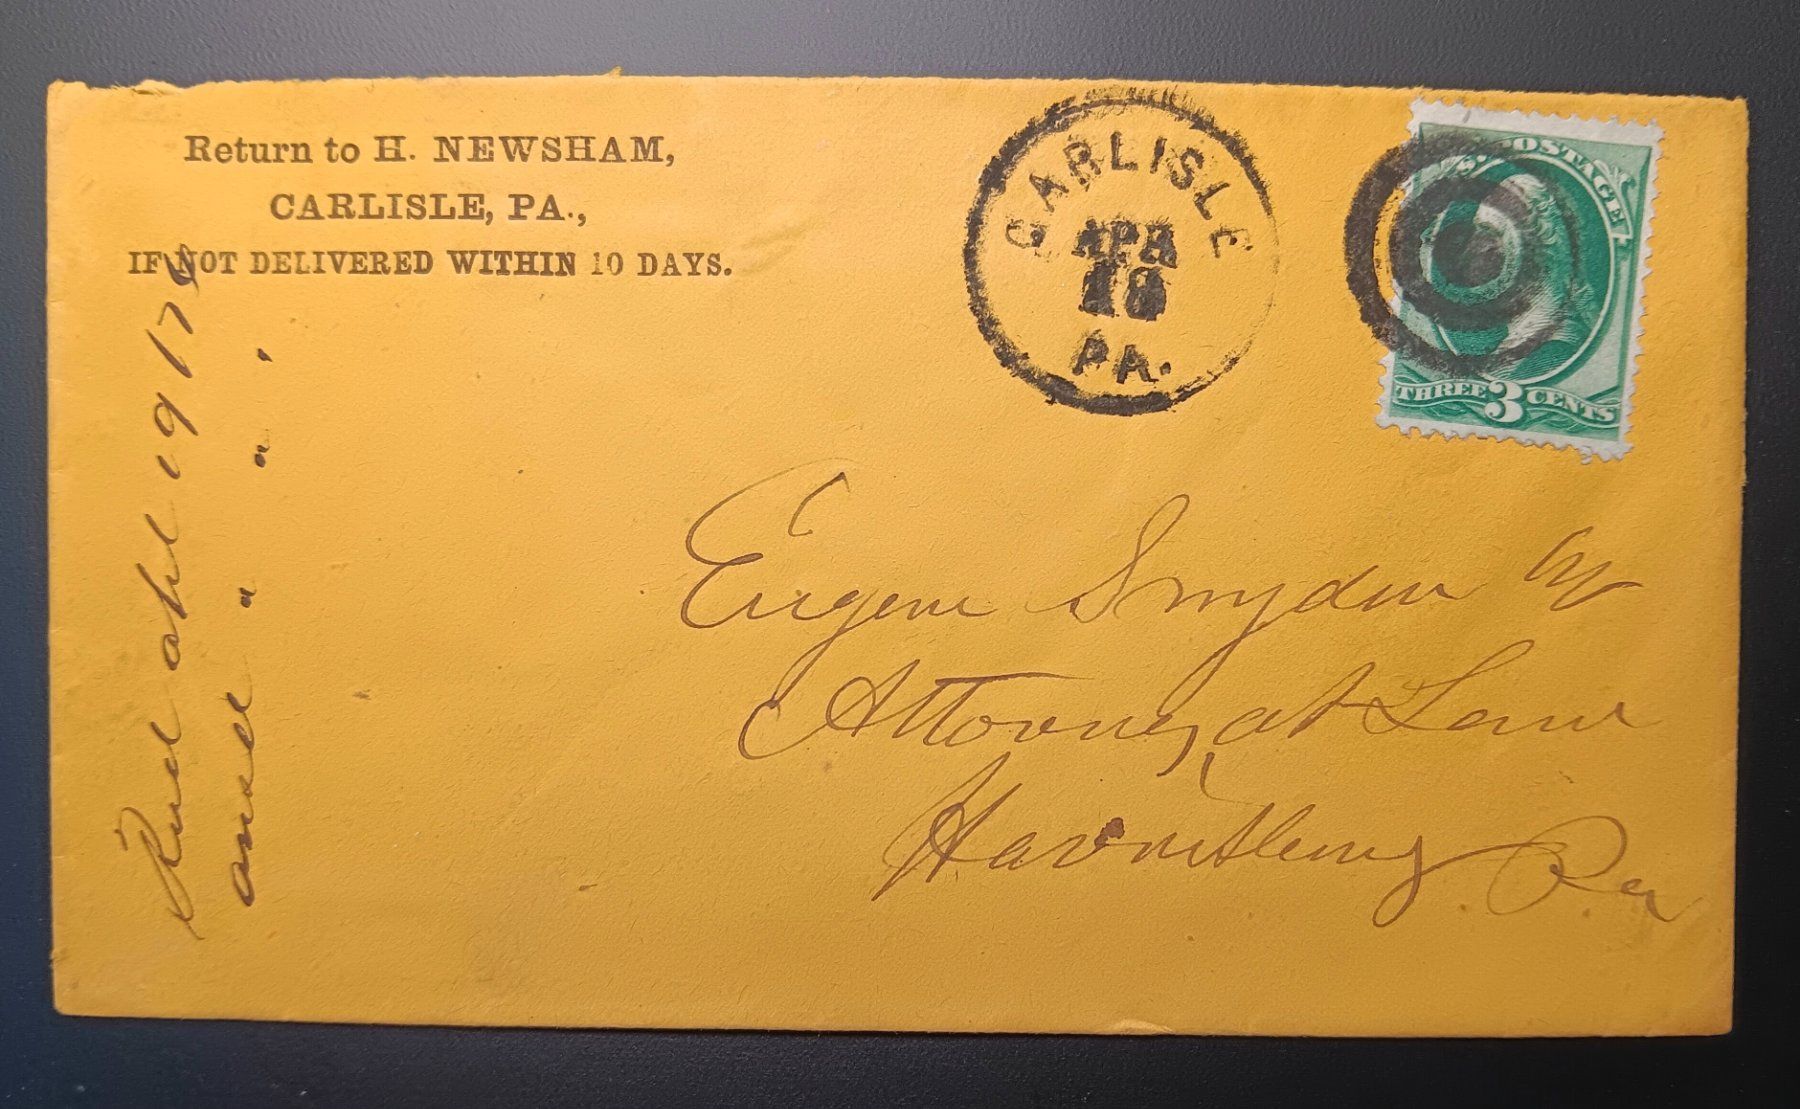 Return to H. NEWSHAM,
CARLISLE, PA.,
IF NOT DELIVERED WITHIN 10 DAYS.
CARLISLE
APR
18
PA.
U.S. POSTAGE
THREE 3 CENTS
Eugene Snyder
Attorney at Law
Harrisburg Pa
Recd apl 19 176
ansd " " '